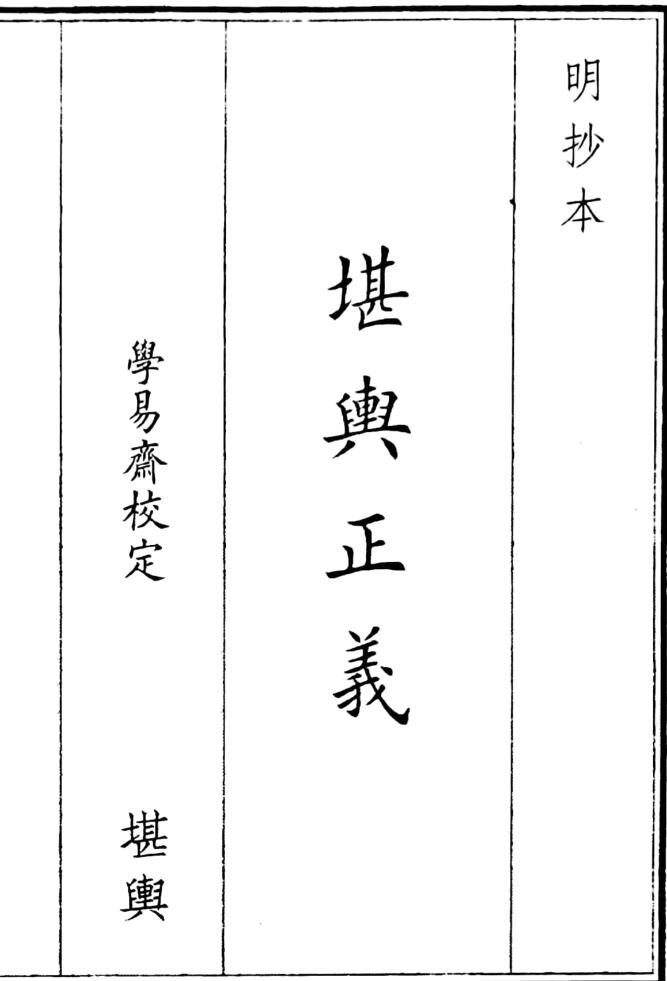 明抄本
堪輿正義
學易齋校定
堪輿